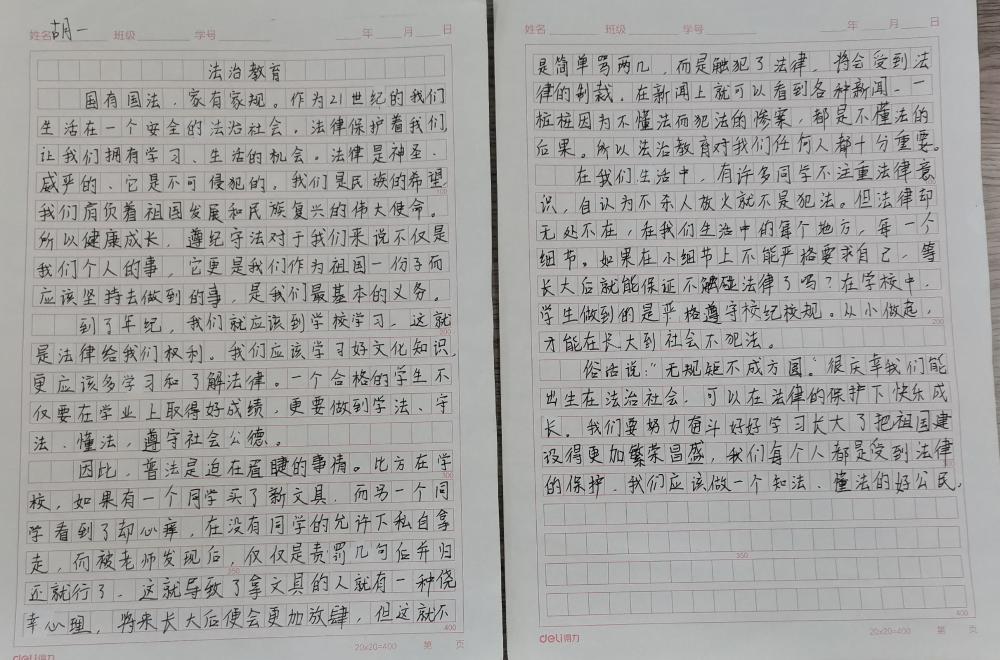 姓名 胡一 班级 学号 年 月 日
法治教育
国有国法、家有家规。作为21世纪的我们
生活在一个安全的法治社会。法律保护着我们,
让我们拥有学习、生活的机会。法律是神圣、
威严的、它是不可侵犯的。我们是民族的希望,
100
我们肩负着祖国发展和民族复兴的伟大使命。
所以健康成长,遵纪守法对于我们来说不仅是
我们个人的事,它更是我们作为祖国一份子而
应该坚持去做到的事,是我们最基本的义务。
到了年纪,我们就应该到学校学习,这就
200
是法律给我们权利。我们应该学习好文化知识,
更应该多学习和了解法律。一个合格的学生不
仅要在学业上取得好成绩,更要做到学法、守
法、懂法,遵守社会公德。
因此,普法是迫在眉睫的事情。比方在学
300
校,如果有一个同学买了新文具,而另一个同
学看到了却心痒,在没有同学的允许下私自拿
走,而被老师发现后,仅仅是责罚几句后并归
350
还就行了、这就导致了拿文具的人就有一种侥
幸心理,将来长大后便会更加放肆,但这就不
400
deli得力 20x20=400 第 页
姓名 班级 学号 年 月 日
是简单骂两几,而是触犯了法律,将会受到法
律的制裁。在新闻上就可以看到各种新闻、一
桩桩因为不懂法而犯法的惨案,都是不懂法的
后果。所以法治教育对我们任何人都十分重要。
在我们生活中,有许多同学不注重法律意
100
识,自认为不杀人放火就不是犯法。但法律却
无处不在,在我们生活中的每个地方,每一个
细节。如果在小细节上不能严格要求自己,等
长大后就能保证不触碰法律了吗?在学校中,
学生做到的是严格遵守校纪校规。从小做起,
200
才能在长大到社会不犯法。
俗话说:"无规矩不成方圆。"很庆幸我们能
出生在法治社会,可以在法律的保护下快乐成
长。我们要努力奋斗好好学习长大了把祖国建
设得更加繁荣昌盛,我们每个人都是受到法律
300
的保护、我们应该做一个知法、懂法的好公民。
350
400
deli得力 20x20=400 第 页